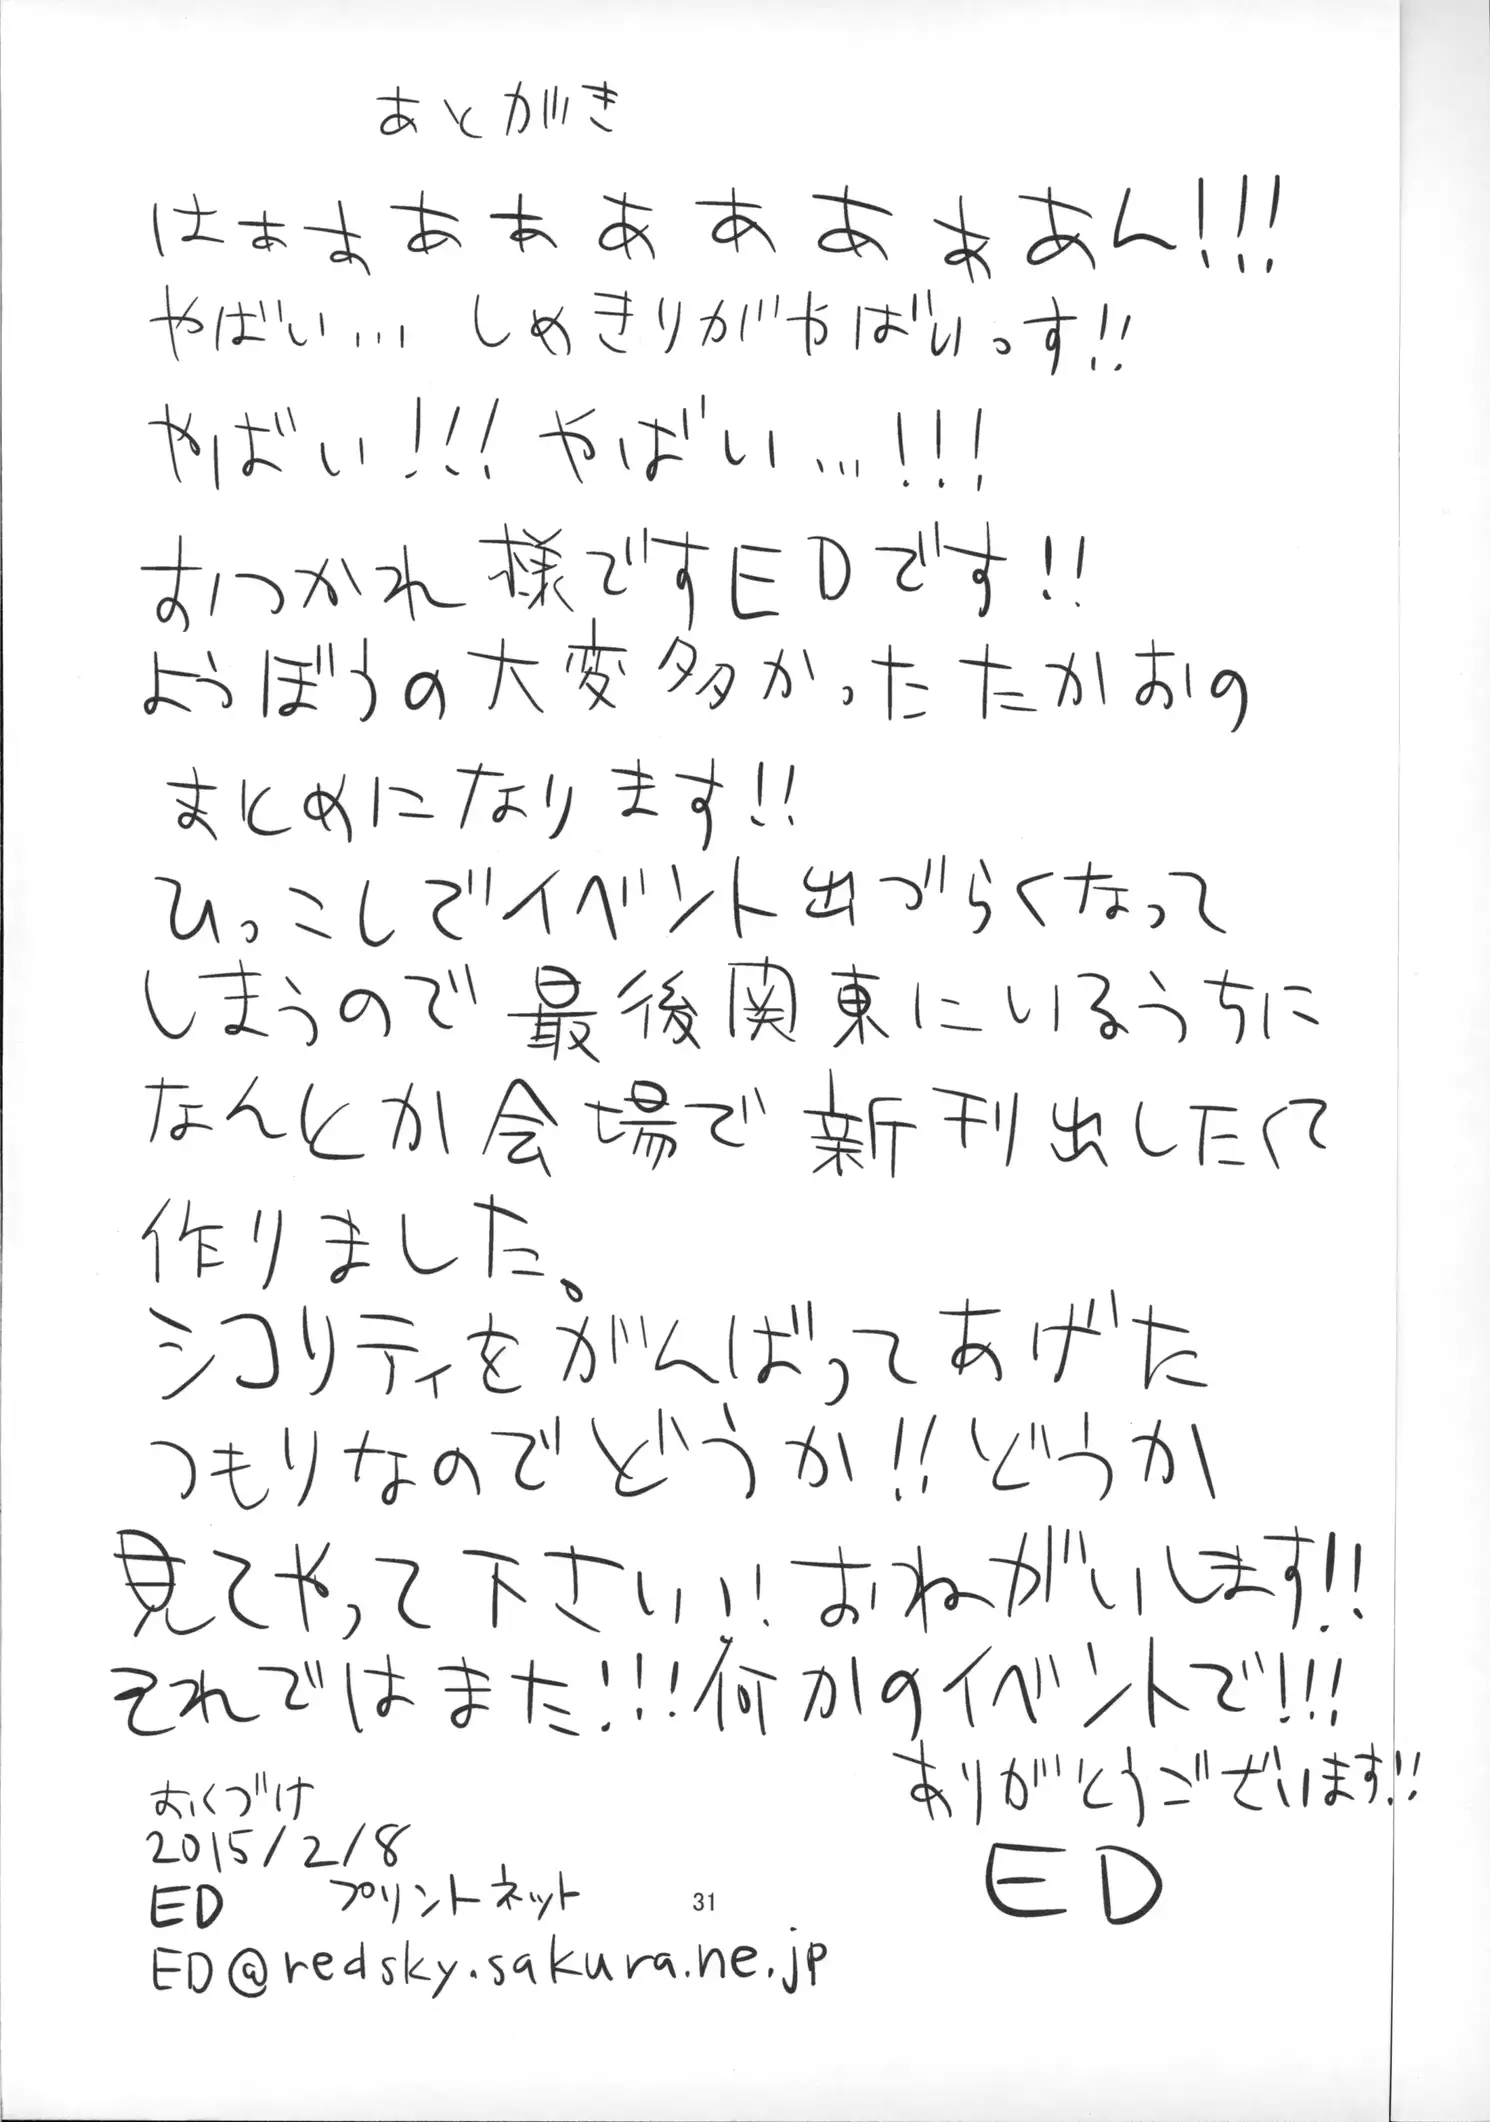 あとがき
はぁぁあぁあああぁあん!!!
やばい… しめきりがやばいっす!!
やばい!!!やばい…!!!
おつかれ様ですEDです!!
ようぼうの大変多かったたかおの
まとめになります!!
ひっこしでイベント出づらくなって
しまうので最後関東にいるうちに
なんとか会場で新刊出したくて
作りました。
シコリティをがんばってあげた
つもりなのでどうか!!どうか
見てやって下さいい!おねがいします!!
それではまた!!!何かのイベントで!!!
ありがとうございます!!
ED
おくづけ
2015/2/8
ED プリントネット
31
ED@redsky.sakura.ne.jp